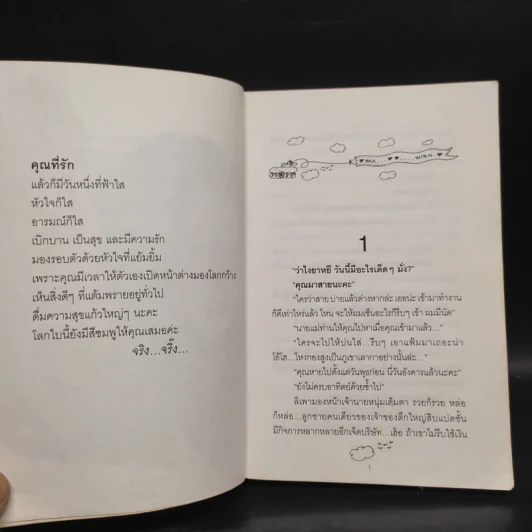 คุณที่รัก
แล้วก็มีวันหนึ่งที่ฟ้าใส
หัวใจก็ใส
อารมณ์ก็ใส
เบิกบาน เป็นสุข และมีความรัก
มองรอบตัวด้วยหัวใจที่แย้มยิ้ม
เพราะคุณมีเวลาให้ตัวเองเปิดหน้าต่างมองโลกกว้าง
เห็นสิ่งดีๆ ที่แต้มพรายอยู่ทั่วไป
ดื่มความสุขแก้วใหญ่ๆ นะคะ
โลกใบนี้ยังมีสีชมพูให้คุณเสมอค่ะ
จริง...จริ๊ง...
1
“ว่าไงยาหยี วันนี้มีอะไรเด็ดๆ มั่ง?”
“คุณมาสายนะคะ”
“ใครว่าสาย บ่ายแล้วต่างหากล่ะ เธอน่ะ เข้ามาทำงาน
ก็ดีเท่าไหร่แล้ว ไหน จะให้ผมเซ็นอะไรก็รีบๆ เข้า ผมมีนัด”
“นายแม่ท่านให้คุณไปหาเมื่อคุณเข้ามาแล้ว...”
“ใครจะไปให้บ่นใส่...รีบๆ เอาแฟ้มมาเถอะน่า
โอ้โฮ...ไหงกองสูงเป็นภูเขาเลากาอย่างนั้นล่ะ...”
“คุณหายไปตั้งแต่วันพุธก่อน นี่วันอังคารแล้วนะคะ”
“ยังไม่ครบอาทิตย์ด้วยซ้ำไป”
ลิเพามองหน้าเจ้านายหนุ่มเต็มตา รวยก็รวย หล่อ
ก็หล่อ...ลูกชายคนเดียวของเจ้าของตึกใหญ่สิบแปดชั้น
มีกิจการหลากหลายอีกเจ็ดบริษัท...เฮ้อ ถ้าเขาไม่รีบใช้เงิน
1